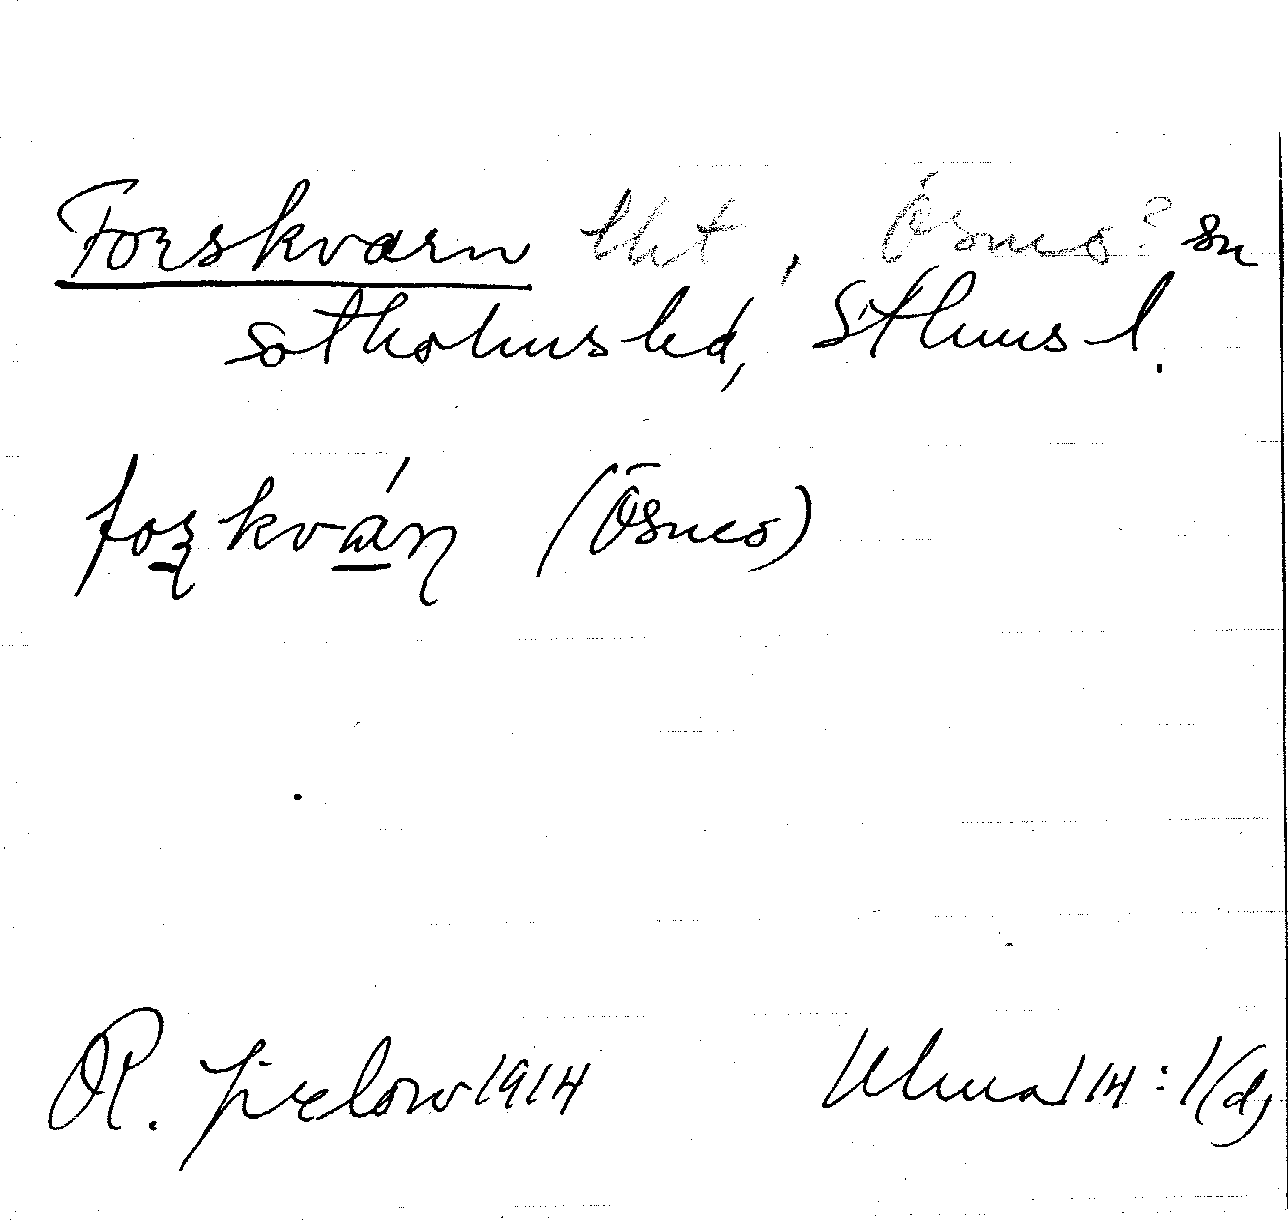 Forskvarn tkt, Ösmo? sn
sotholms hd, Sthms l.
forkván (Ösmo)
R. Jirlow 1914
Ulma 114:1(d)